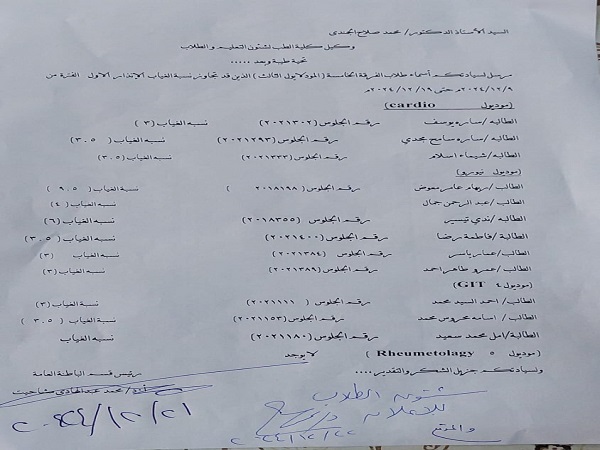 السيد الأستاذ الدكتور/ محمد صلاح الجدى
وكيل كلية الطب لشئون التعليم و الطلاب
تحية طيبة وبعد .....
مرسل لسيادتكم أسماء طلاب الفرقة الخامسة ( الموديول الثالث ) الذين قد تجاوز نسبة الغياب الإنذار الاول الفترة من
٢٠٢٤/١٢/٩م حتى ٢٠٢٤/١٢/١٩م
(موديول cardio)
الطالبه /ساره يوسف رقم الجلوس (٢٠٢١٣٠٢) نسبه الغياب ( ٣ )
الطالبه /ساره سامح مجدي رقم الجلوس (٢٠٢١٢٩٣) نسبه الغياب ( ٣.٥ )
الطالبه/شيماء اسلام رقم الجلوس (٢٠٢١٣٣٣) نسبة الغياب (٣.٥ )
(موديول نيورو)
الطالب /ريهام عامر معوض رقم الجلوس (٢٠١٨١٩٨ ) نسبة الغياب ( ٩.٥ )
الطالب /عبد الرحمن جمال نسبه الغياب ( ٤ )
الطالبه /ندي تيسير رقم الجلوس (٢٠١٨٣٥٥) نسبه الغياب (٦)
الطالبة /فاطمة رضا رقم الجلوس (٢٠٢١٤٠٠) نسبه الغياب (٣.٥ )
الطالب/عمار ياسر رقم الجلوس (٢٠٢١٣٨٤) نسبة الغياب (٣)
الطالب/عمرو طاهر احمد رقم الجلوس (٢٠٢١٣٨٩) نسبة الغياب (٣)
(موديول٤ GIT)
الطالب / احمد السيد محمد رقم الجلوس (٢٠٢١١١١ ) نسبة الغياب (٣)
الطالب / اسامه محروس محمد رقم الجلوس (٢٠٢١١٥٣) نسبة الغياب ( ٣.٥ )
الطالبة/امل محمد سعيد رقم الجلوس (٢٠٢١١٨٠) نسبه الغياب
(موديول ٥ Rheumetolagy ) لا يوجد
ولسيادتكم جزيل الشكر والتقدير ....
رئيس قسم الباطنة العامة
أ.د/ محمد عبدالهادي مشاحيت
٢٠٢٤/١٢/٢١
شئون الطلاب
للاعلان
٢٠٢٤/١٢/٢٢